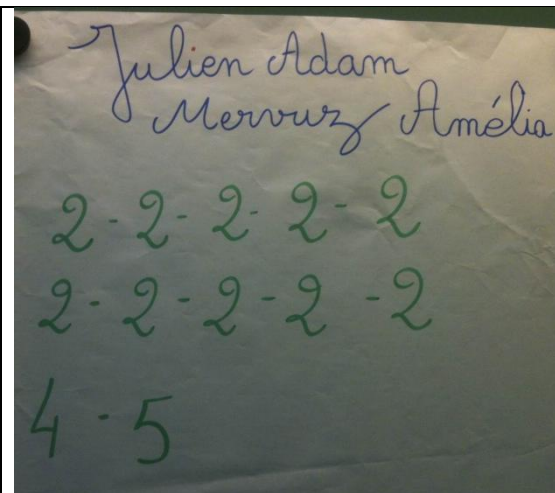 Julien Adam
Mervuz Amélia
2 - 2 - 2 - 2 - 2
2 - 2 - 2 - 2 - 2
4 - 5